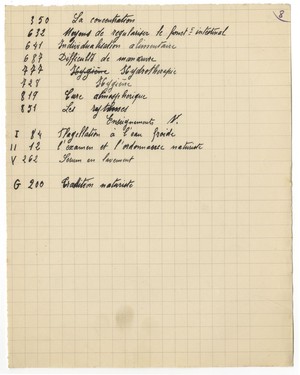 8
350 La concentration
632 Moyens de régulariser le fonct. intestinal
641 Individualisation alimentaire
687 Difficulté de
777 Hygiène Hydrothérapie
728 Hygiène
819 Cure atmosphérique
831 Les
Enseignements N.
I 84 Flagellation à l'eau froide
II 12 l'examen et l'ordonnance naturiste
V 262 Serum en lavement
G 200 Tradition naturiste